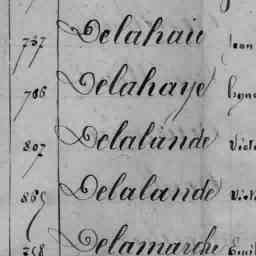 737 Delahaie Jean
786 Delahaye
807 Delalande Vict
865 Delalande Vict
358 Delamarche Emil